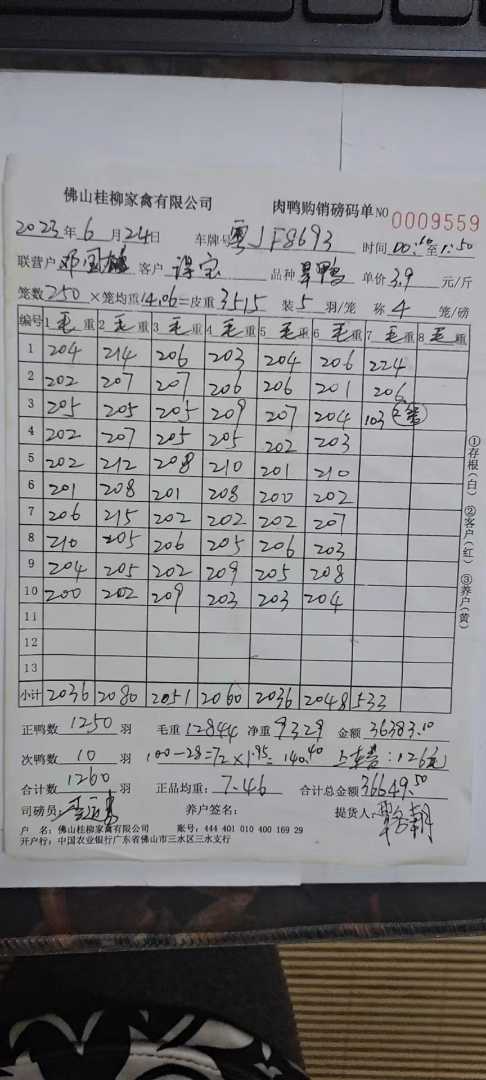 佛山桂柳家禽有限公司 肉鸭购销磅码单 NO 0009559
2023年6月24日 车牌号 粤JF8693 时间00:10至1:50
联营户 邓国 客户 谋宝 品种 旱鸭 单价3.9元/斤
笼数250×笼均重14.06=皮重3515 装5羽/笼 称4笼/磅
编号 1毛重 2毛重 3毛重 4毛重 5毛重 6毛重 7毛重 8毛重
1 204 214 206 203 204 206 224
2 202 207 207 206 206 201 206
3 205 205 205 209 207 204 103 2笼
4 202 207 205 205 202 203
5 202 212 208 210 201 210
6 201 208 201 208 200 202
7 206 215 202 202 202 207
8 210 205 206 205 206 203
9 204 205 202 209 205 208
10 200 202 209 203 203 204
11
12
13
小计 2036 2080 2051 2060 2036 2048 533
①存根(白) ②客户(红) ③养户(黄)
正鸭数 1250 羽 毛重 12844 净重 9329 金额 36383.10
次鸭数 10 羽 100-28=72×1.95=140.40 上车费:126元
合计数 1260 羽 正品均重:7.46 合计总金额 36649.50
司磅员: 养户签名: 提货人:
户 名:佛山桂柳家禽有限公司 账号:444 401 010 400 169 29
开户行:中国农业银行广东省佛山市三水区三水支行